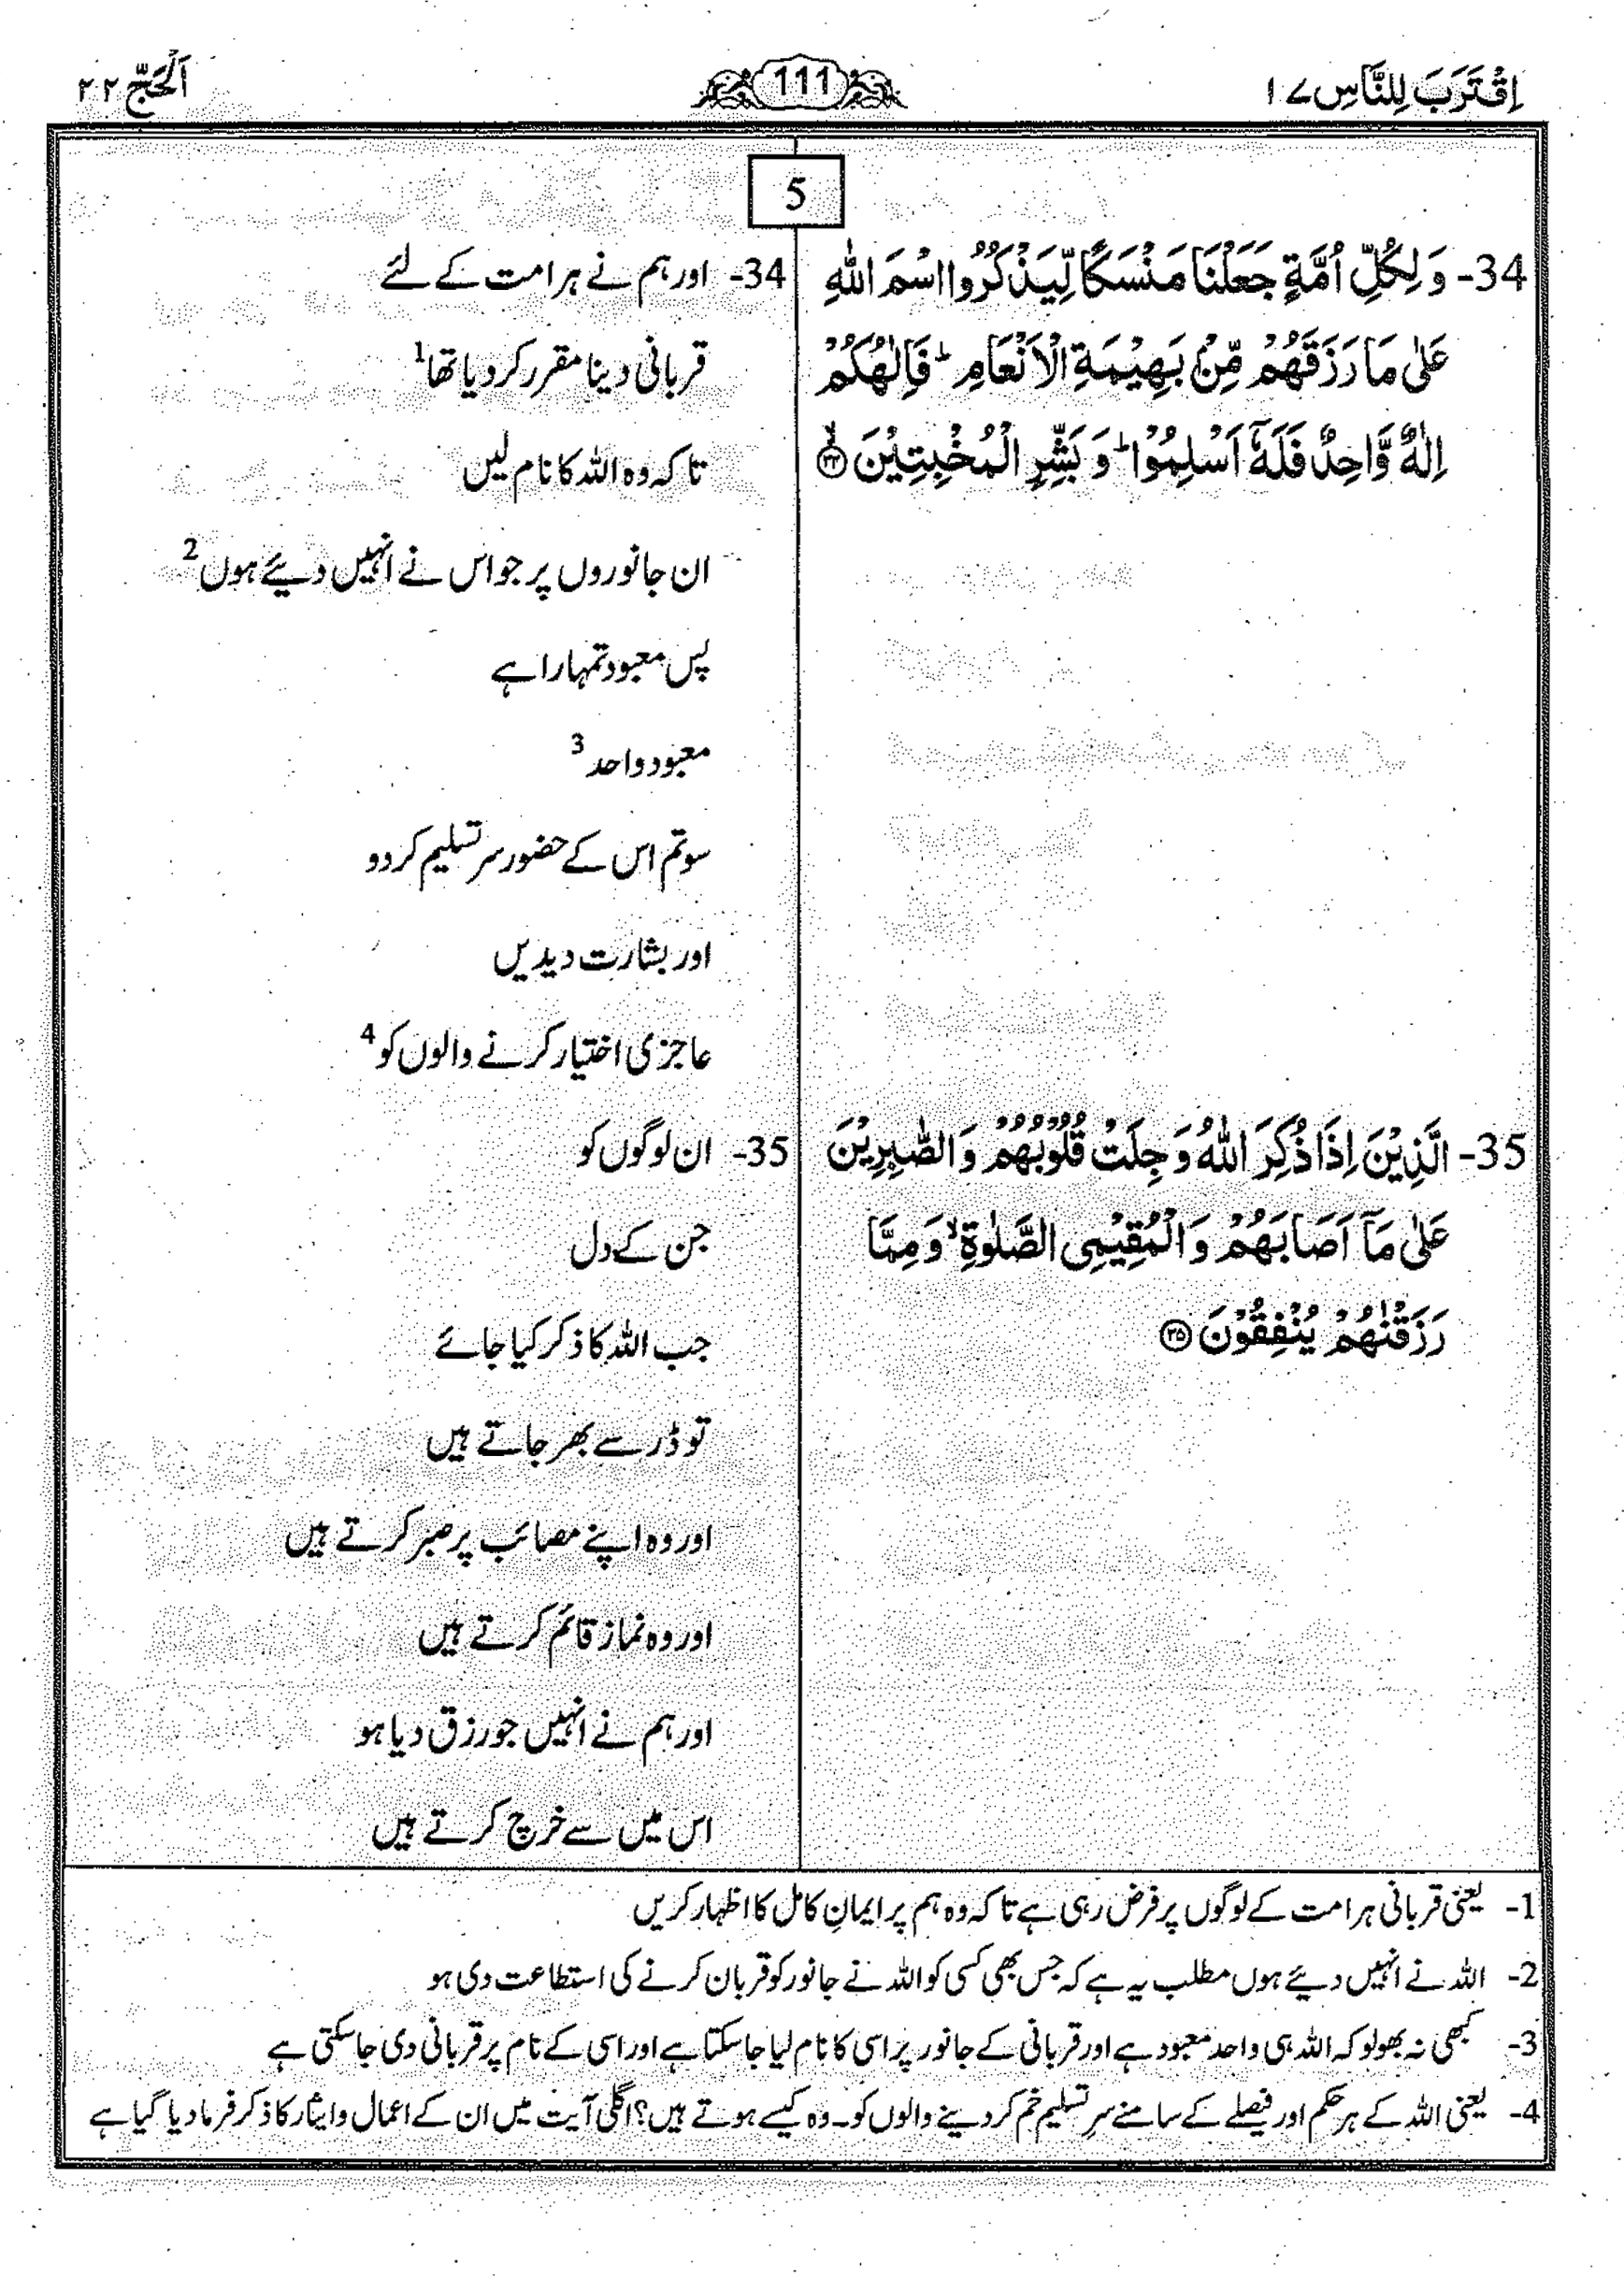 اِقْتَرَبَ لِلنَّاسِ ١٧
111
اَلْحَجّ ٢٢
5
34- وَ لِكُلِّ اُمَّةٍ جَعَلْنَا مَنْسَكًا لِّیَذْكُرُوا اسْمَ اللّٰهِ
عَلٰی مَا رَزَقَهُمْ مِّنْۢ بَهِیْمَةِ الْاَنْعَامِ ؕ فَاِلٰهُكُمْ
اِلٰهٌ وَّاحِدٌ فَلَهٗۤ اَسْلِمُوْا ؕ وَ بَشِّرِ الْمُخْبِتِیْنَ ۙ۳۴
34- اور ہم نے ہر امت کے لئے
قربانی دینا مقرر کر دیا تھا 1
تاکہ وہ اللہ کا نام لیں
ان جانوروں پر جو اس نے انہیں دیئے ہوں 2
پس معبود تمہارا ہے
معبود واحد 3
سو تم اس کے حضور سر تسلیم کر دو
اور بشارت دیدیں
عاجزی اختیار کرنے والوں کو 4
35- الَّذِیْنَ اِذَا ذُكِرَ اللّٰهُ وَ جِلَتْ قُلُوْبُهُمْ وَ الصّٰبِرِیْنَ
عَلٰی مَاۤ اَصَابَهُمْ وَ الْمُقِیْمِی الصَّلٰوةِ ۙ وَ مِمَّا
رَزَقْنٰهُمْ یُنْفِقُوْنَ ۳۵
35- ان لوگوں کو
جن کے دل
جب اللہ کا ذکر کیا جائے
تو ڈر سے بھر جاتے ہیں
اور وہ اپنے مصائب پر صبر کرتے ہیں
اور وہ نماز قائم کرتے ہیں
اور ہم نے انہیں جو رزق دیا ہو
اس میں سے خرچ کرتے ہیں
1- یعنی قربانی ہر امت کے لوگوں پر فرض رہی ہے تاکہ وہ ہم پر ایمانِ کامل کا اظہار کریں
2- اللہ نے انہیں دیئے ہوں مطلب یہ ہے کہ جس بھی کسی کو اللہ نے جانور کو قربان کرنے کی استطاعت دی ہو
3- کبھی نہ بھولو کہ اللہ ہی واحد معبود ہے اور قربانی کے جانور پر اسی کا نام لیا جا سکتا ہے اور اسی کے نام پر قربانی دی جا سکتی ہے
4- یعنی اللہ کے ہر حکم اور فیصلے کے سامنے سرِ تسلیم خم کر دینے والوں کو۔ وہ کیسے ہوتے ہیں؟ اگلی آیت میں ان کے اعمال و ایثار کا ذکر فرما دیا گیا ہے